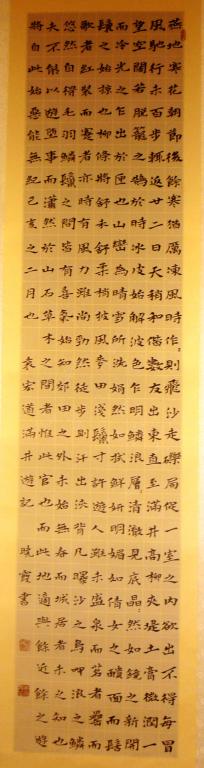 燕地寒花朝節後餘寒猶厲凍風時作々則飛沙走礫局促一室之內欲出不得每冒
風馳行未百步輒返廿二日天稍和偕數友出東直至滿井高柳夾堤土膏微潤一
望空闊若脫籠之鵠於時冰皮始解波色乍明鱗浪層々清澈見底晶々然如鏡之新開
而冷光之乍出於匣也山巒為晴雪所洗娟然如拭鮮妍明媚如倩女之靧面而髻
鬟之始掠也柳條將舒未舒柔梢披風麥田淺鬣寸許遊人雖未盛泉而茗者罍而
歌者紅裝而蹇者亦時時有風力雖尚勁然徒步則汗出浹背凡曝沙之鳥呷浪之鱗
悠然自得毛羽鱗鬣之間皆有喜氣始知郊田之外未始無春而城居者未之知也
夫不能以遊墮事而瀟然於山石草木之間者惟此官也而此地適與餘近餘之遊
將自此始惡能無紀己亥之二月也 袁宏道滿井遊記 曉霞書